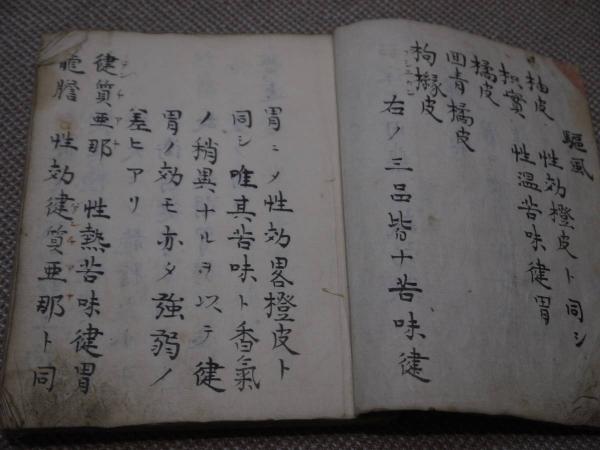 驅風
柚皮 性効橙皮ト同シ
枳實 性温苦味健胃
橘皮
回青橘皮
枸櫞皮
右ノ三品皆十苦味健
胃ニメ性効畧橙皮ト
同シ唯其苦味ト香氣
ノ稍異ナルヲ以テ健
胃ノ効モ亦タ強弱ノ
差ヒアリ
健質亜那 性熱苦味健胃
龍膽 性効健質亜那ト同